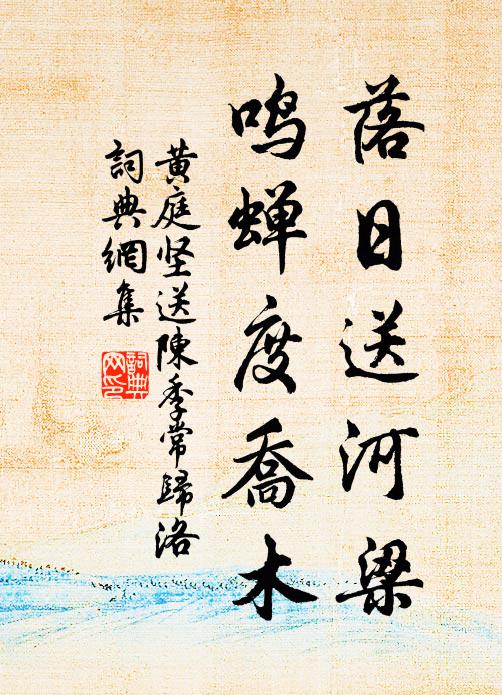 落日送河梁
鸣蝉度喬木
黄庭坚送陳季常歸洛
詞典網集
詞典
网印